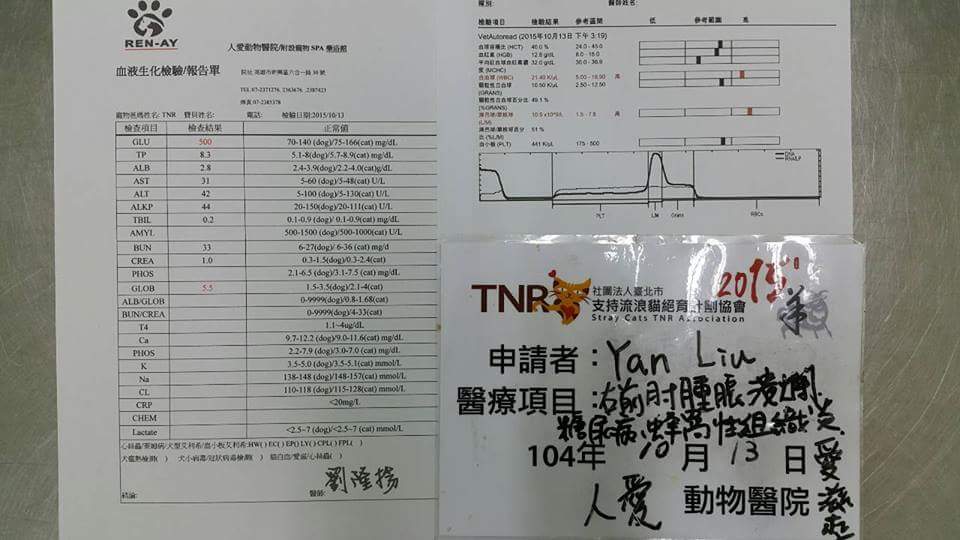 REN-AY
人愛動物醫院/附設寵物 SPA 藥浴館
血液生化檢驗/報告單
院址:高雄市新興區六合一路 98 號
TEL:07-2371276, 2363676 ,2387423
傳真:07-2385378
寵物爸媽姓名: TNR 寶貝姓名: 電話: 檢驗日期:2015/10/13
檢查項目 檢查結果 正常值
GLU 500 70-140 (dog)/75-166(cat) mg/dL
TP 8.3 5.1-8(dog)/5.7-8.9(cat) mg/dL
ALB 2.8 2.4-3.9(dog)/2.2-4.0(cat)g/dL
AST 31 5-60 (dog)/5-48(cat) U/L
ALT 42 5-100 (dog)/5-130(cat) U/L
ALKP 44 20-150(dog)/20-111(cat) U/L
TBIL 0.2 0.1-0.9 (dog)/ 0.1-0.9(cat) mg/dL
AMYL 500-1500 (dog)/500-1000(cat) U/L
BUN 33 6-27(dog)/ 6-36 (cat) mg/d
CREA 1.0 0.3-1.5(dog)/0.3-2.4(cat)
PHOS 2.1-6.5 (dog)/3.1-7.5 (cat) mg/dL
GLOB 5.5 1.5-3.5(dog)/2.1-4(cat)
ALB/GLOB 0-9999(dog)/0.8-1.68(cat)
BUN/CREA 0-9999(dog)/4-33(cat)
T4 1.1~4ug/dL
Ca 9.7-12.2 (dog)/9.0-11.6(cat) mg/dL
PHOS 2.2-7.9 (dog)/3.0-7.0 (cat) mg/dL
K 3.5-5.0 (dog)/3.5-5.1(cat) mmol/L
Na 138-148 (dog)/148-157(cat) mmol/L
CL 110-118 (dog)/115-128(cat) mmol/L
CRP <20mg/L
CHEM
Lactate <2.5~7 (dog)/<2.5~7 (cat) mmol/L
心絲蟲/萊姆病/犬型艾利希/血小板艾利希:HW( ) EC( ) EP() LY ( ) CPL( ) FPL( )
犬瘟熱檢測( ) 犬小病毒/冠狀病毒檢測( ) 貓白血/愛滋/心絲蟲( )
結論: 醫師: 劉隆揚
種別: 醫師姓名:
檢驗項目 檢驗結果 參考區間 低 參考範圍 高
VetAutoread (2015年10月13日 下午 3:19)
血球容積比 (HCT) 40.0 % 24.0 - 45.0
血紅素 (HGB) 12.8 g/dL 8.0 - 15.0
平均紅血球血紅素濃度 (MCHC) 32.0 g/dL 30.0 - 36.9
白血球 (WBC) 21.40 K/µL 5.00 - 18.90 高
顆粒性白血球 (GRANS) 10.50 K/µL 2.50 - 12.50
顆粒性白血球百分比 (%GRANS) 49.1 %
淋巴球/單核球 (L/M) 10.9 x10^9/L 1.5 - 7.8 高
淋巴球/單核球百分比 (%L/M) 51 %
血小板 (PLT) 441 K/µL 175 - 500
DNA
RNA/LP
PLT L/M Grans RBCs
2015
羊
TNR 社團法人臺北市
支持流浪貓絕育計劃協會
Stray Cats TNR Association
申請者:Yan Liu
醫療項目:右前肘腫脹潰爛
糖尿病,蜂窩性組織炎
104年 10 月 13 日
人愛 動物醫院
愛滋